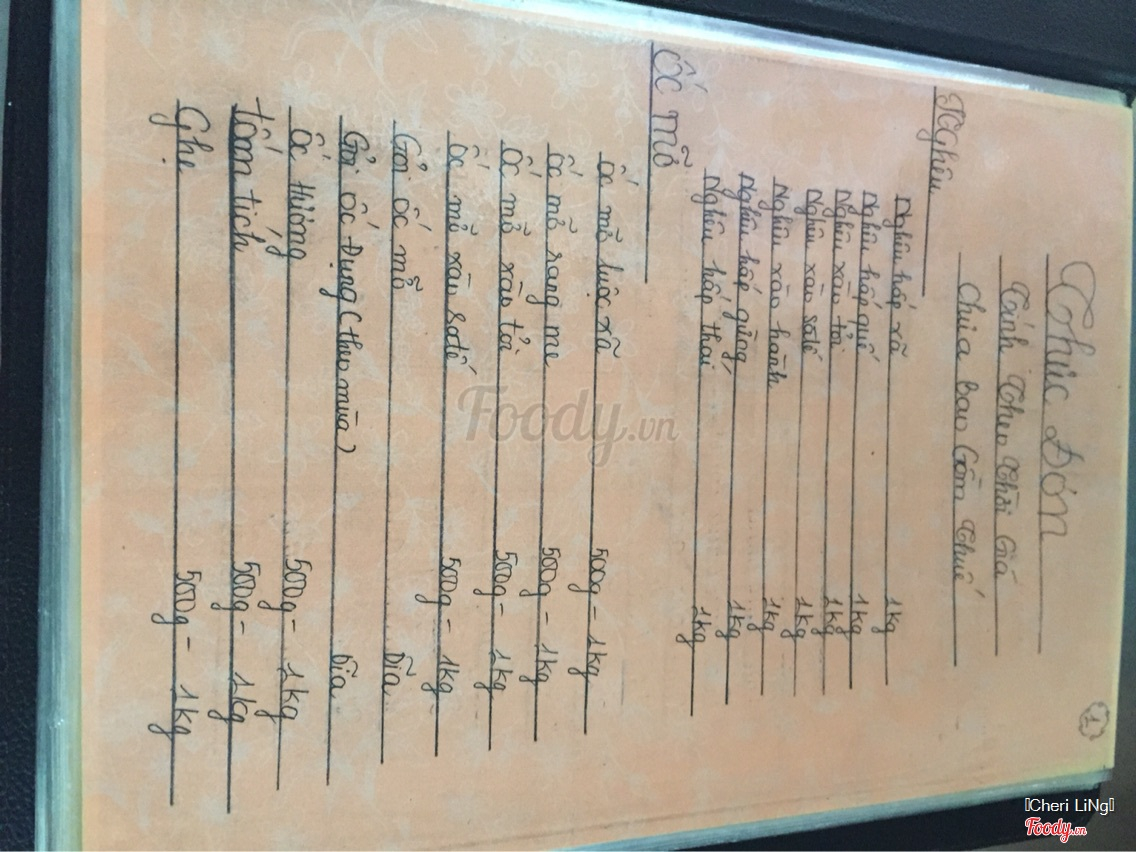 Thực Đơn
Tính Theo Thời Giá
Chưa Bao Gồm Thuế
1
Nghêu
Nghêu hấp xã 1kg
Nghêu hấp quế 1kg
Nghêu xào tỏi 1kg
Nghêu xào sa tế 1kg
Nghêu xào hành 1kg
Nghêu hấp gừng 1kg
Nghêu hấp thái 1kg
Ốc mỡ
Ốc mỡ luộc xã 500g - 1kg
Ốc mỡ rang me 500g - 1kg
Ốc mỡ xào tỏi 500g - 1kg
Ốc mỡ xào sa tế 500g - 1kg
Gỏi ốc mỡ Dĩa
Gỏi ốc Đụng (theo mùa) Dĩa
Ốc Hương 500g - 1kg
Tôm tích 500g - 1kg
Ghẹ 500g - 1kg
Foody.vn
Cheri LiNg
Foody.vn